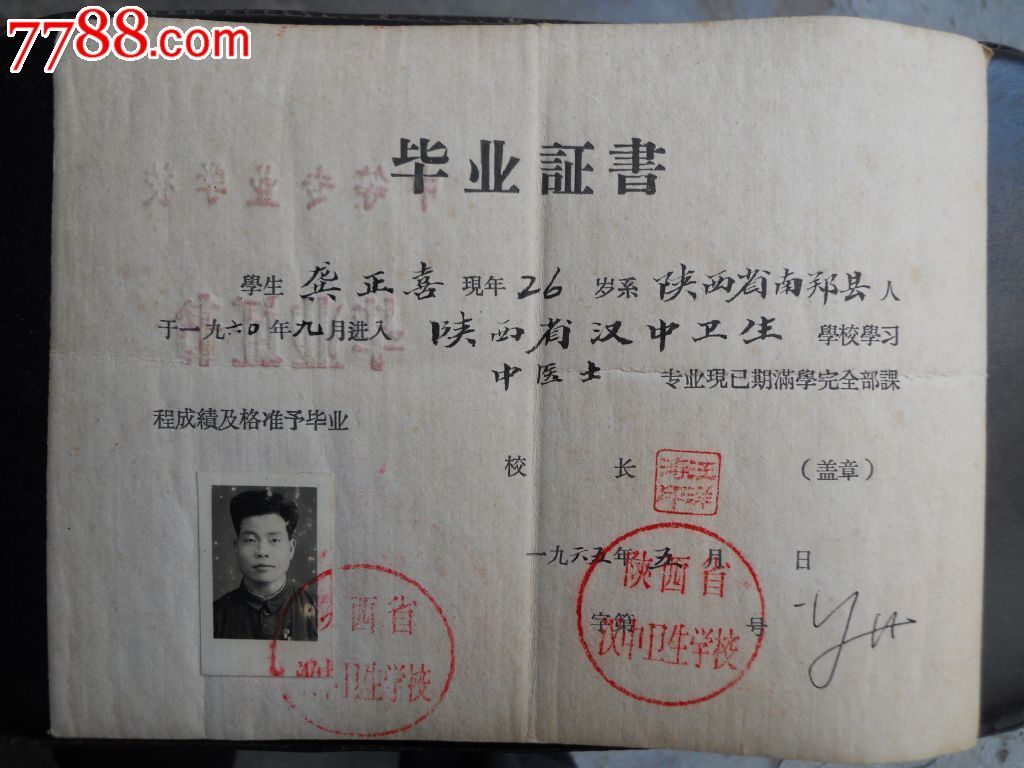 7788.com
毕业証書
中等专业学校
毕业证书
學生 龚正喜 現年 26 岁系 陕西省南郑县 人
于一九六〇年九月进入 陕西省汉中卫生 學校學习
中医士 专业現已期滿學完全部課
程成績及格准予毕业
校 长 (盖章)
一九六五年 五 月 日
字第 号
陕西省
汉中卫生学校
西省
卫生学校